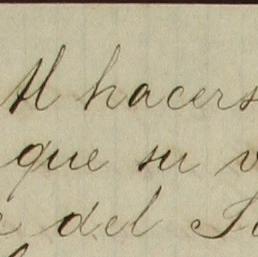 Al hacers
que su v
e del S